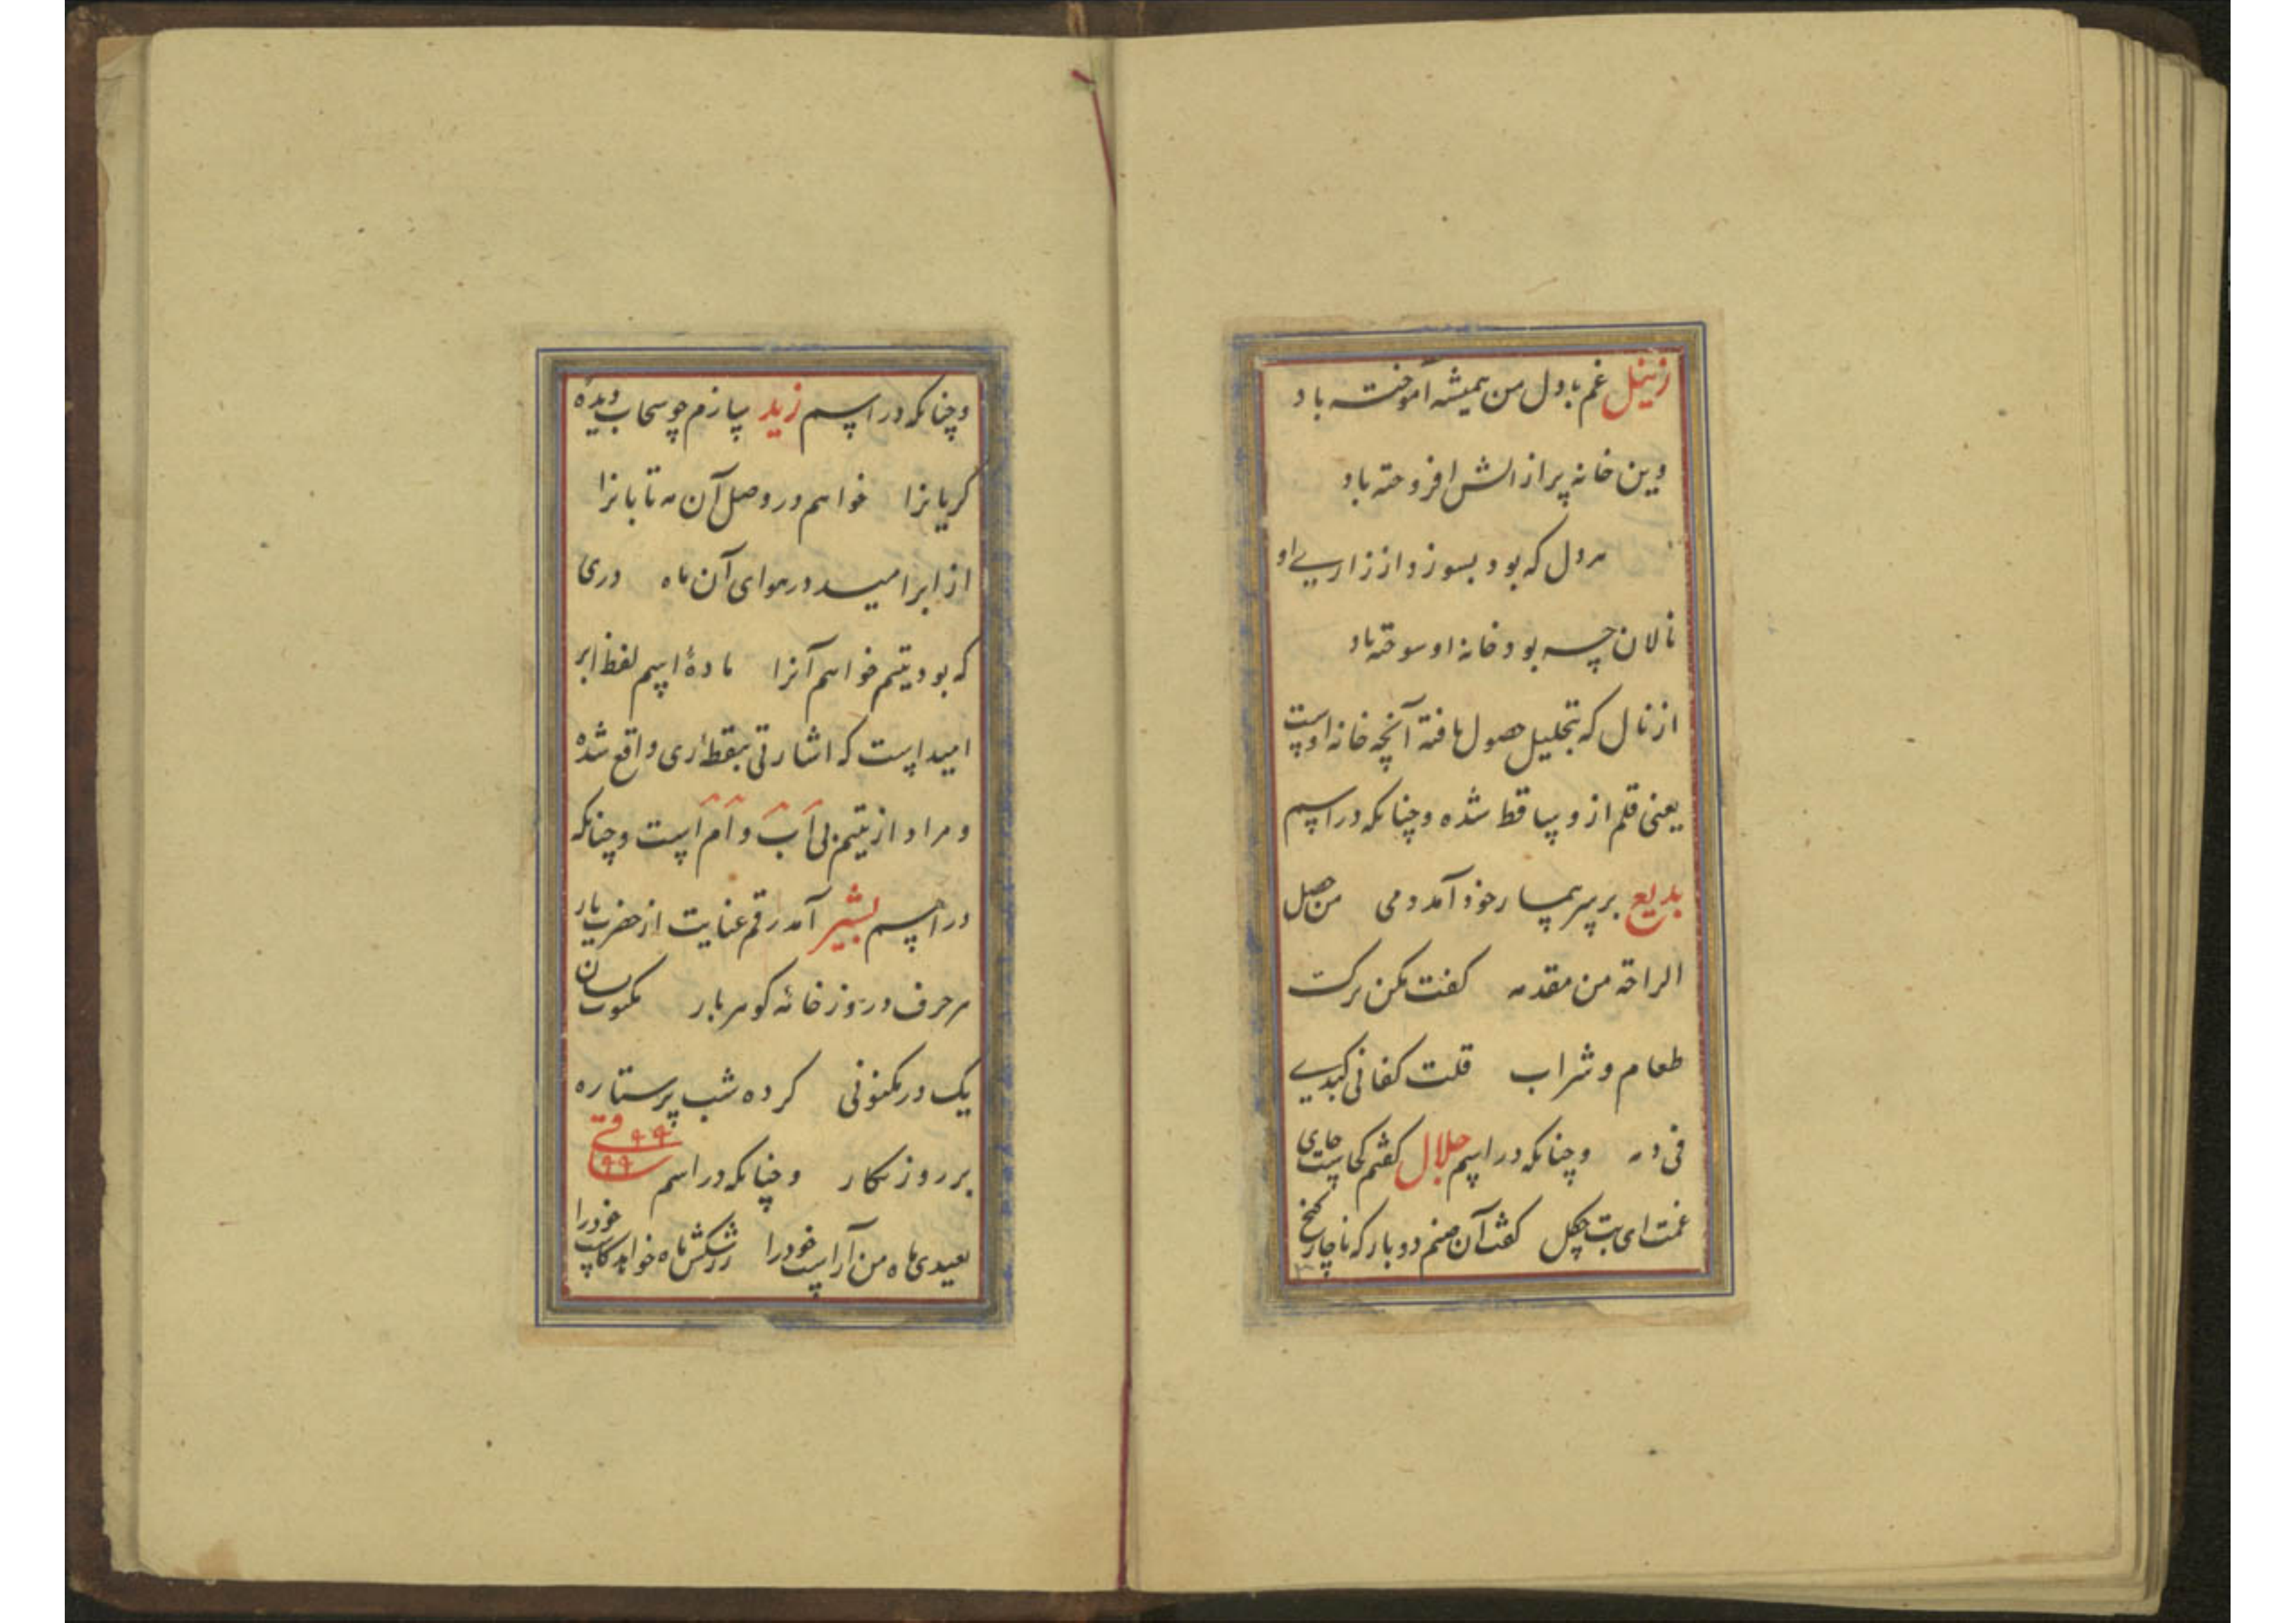 زینل غم با دل من همیشه آموخته باد
وین خانه پر از الش افروخته باد
هر دل که بود بسوزد از زاریی او
نالان چه بود خانه او سوخته باد
از نال که بتحلیل حصول یافته آنچه خانه اوست
یعنی قلم ازو ساقط شده و چنانکه در اسم
بدیع بر سر بیمار خود آمد دمی من حصل
الراحة من مقدمه گفت مکن ترک
طعام و شراب قلت کفانی کبدی
فی دمه و چنانکه در اسم جلال گفتم کجاست جای
غمت ای بت چگل گفت آن صنم دو بار که ناچار کنج
و چنانکه در اسم زید سازم چو سحاب دیدهٔ
گریانرا خواهم در وصل آن مه تابانرا
از ابر امید در هوای آن ماه دری
که بود یتیم خواهم آنرا مادهٔ اسم لفظ ابر
امید است که اشارتی بنقطهٔ ری واقع شده
و مراد از یتیم بی اب و ام است و چنانکه
در اسم بشیر آمد رقم عنایت از حضرت یار
هر حرف در و ز خانهٔ گوهر بار مکتوب بسان
یک در مکنونی کرده شب پر ستاره
بر روز نگار و چنانکه در اسم
بعیدی ماه من آراست خود را ز رشکش ماه خواهد کاست خود را